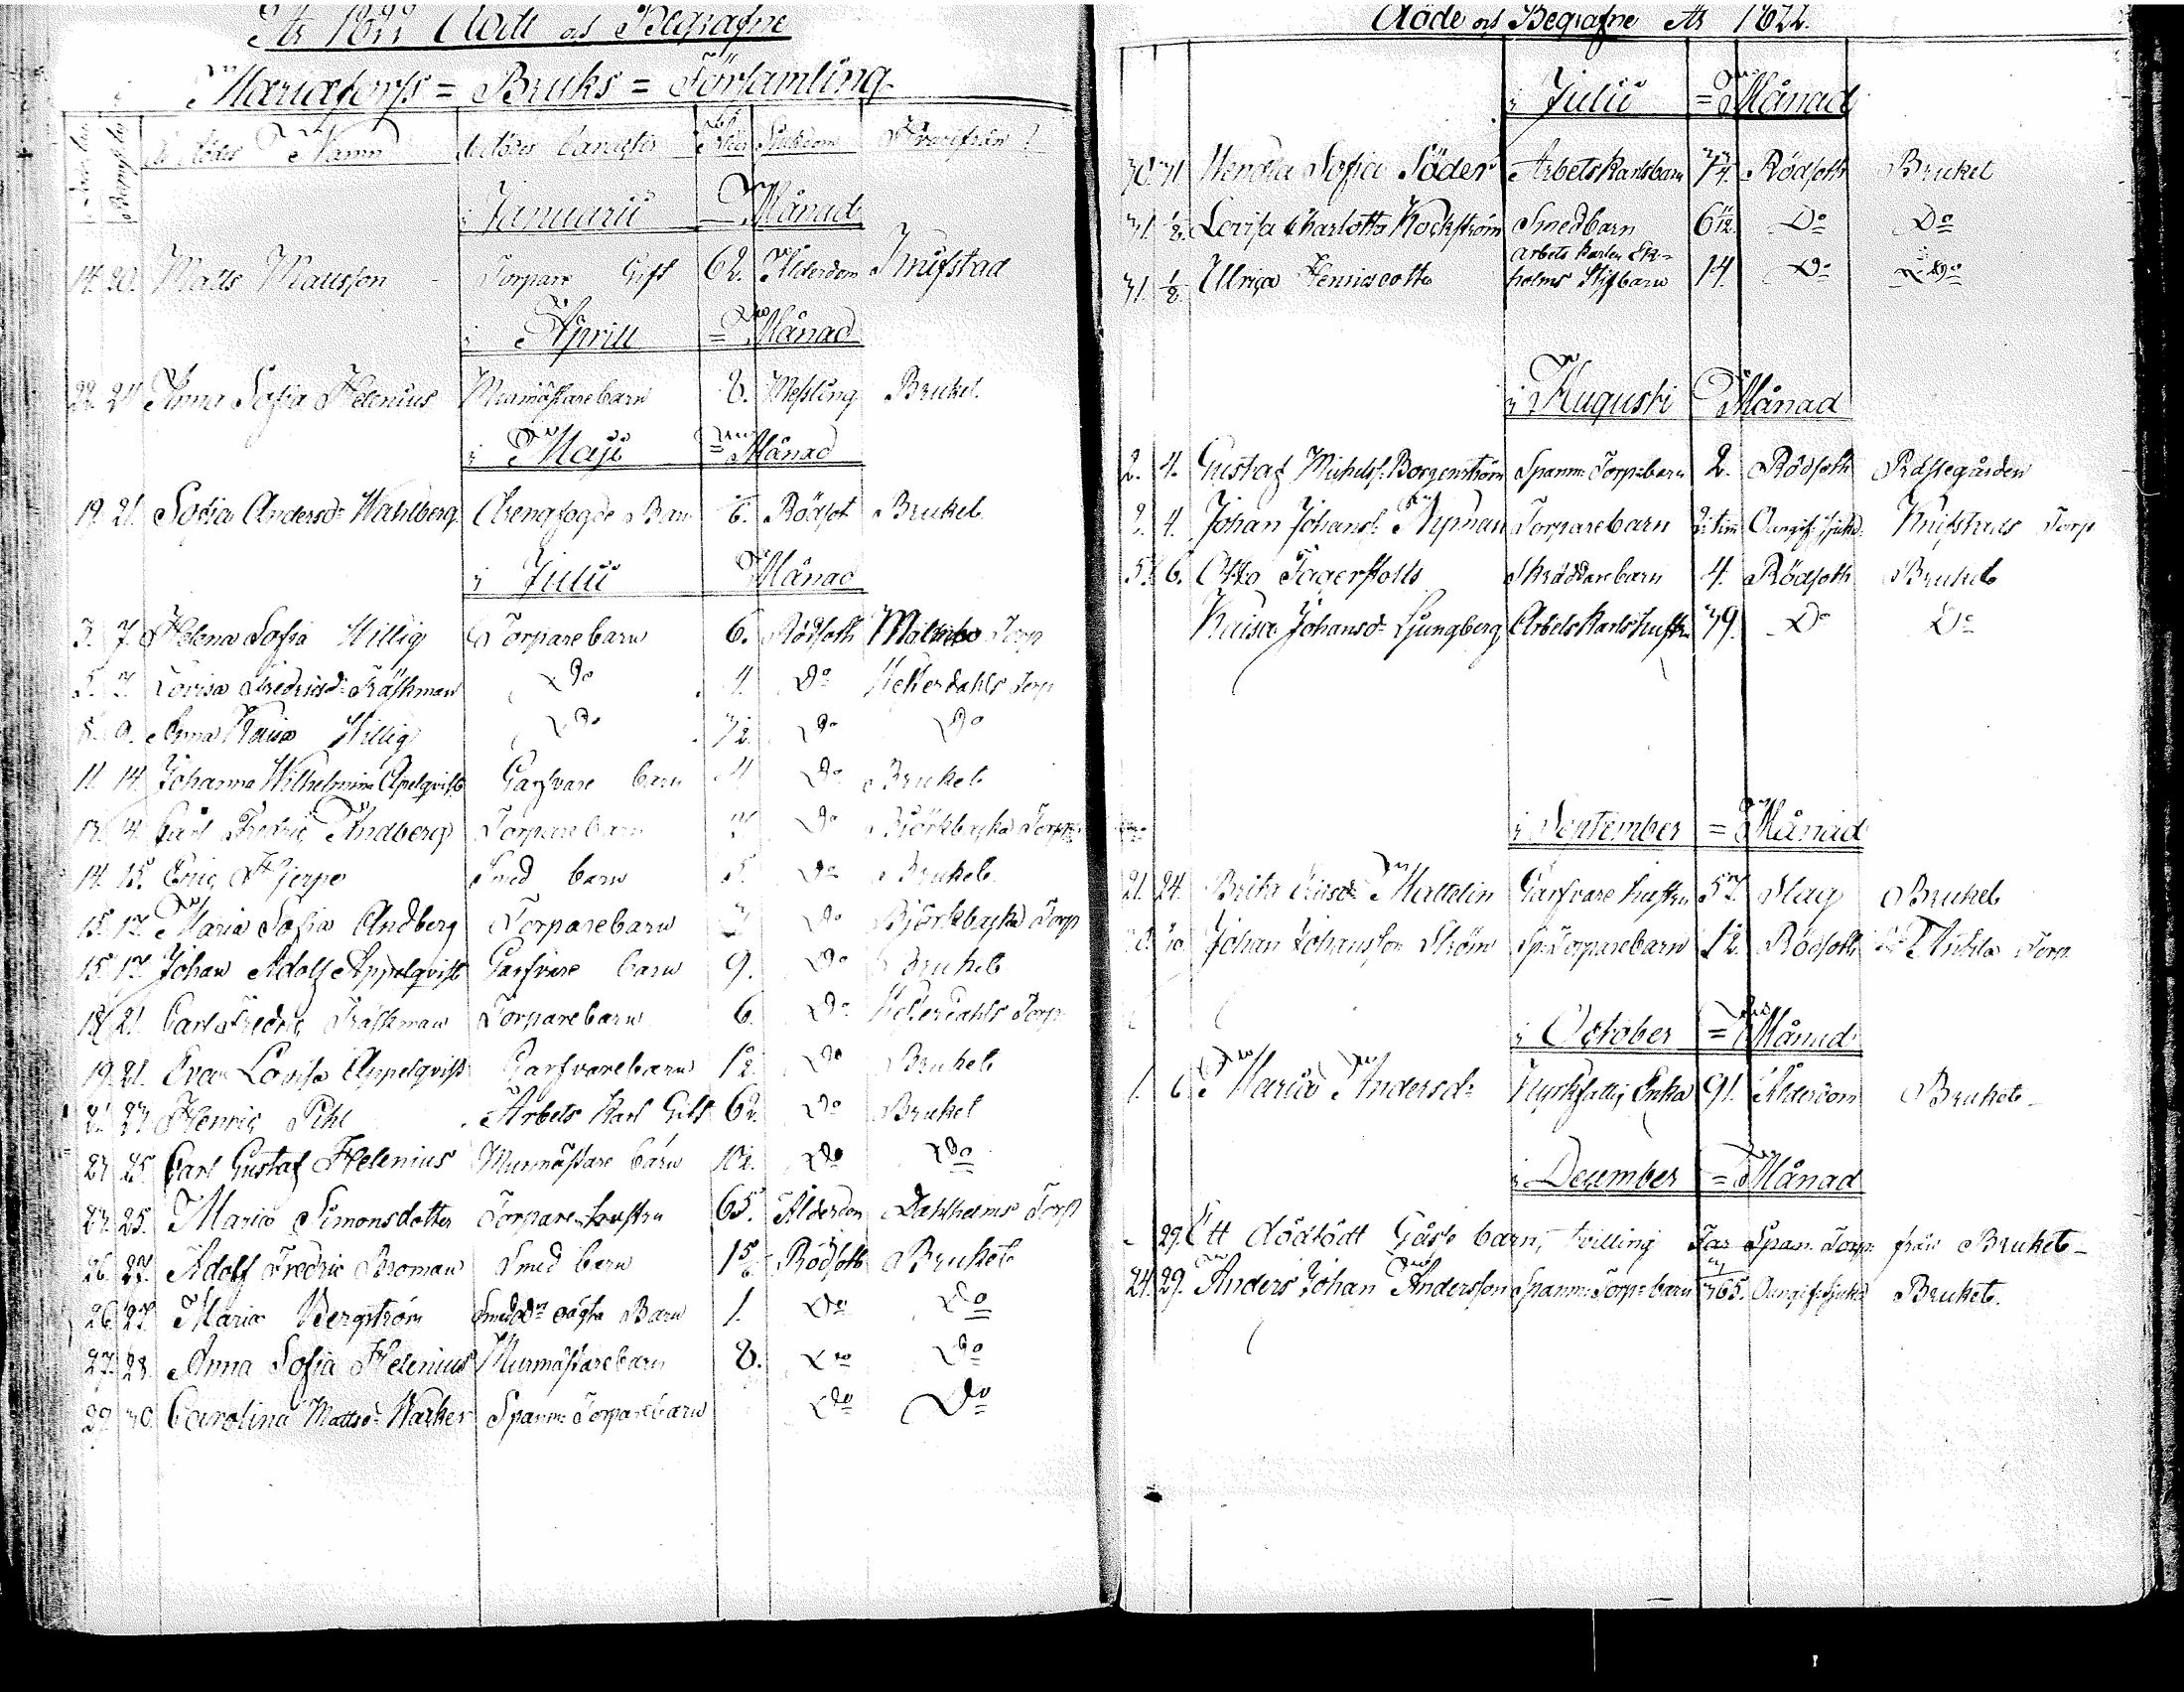 År 1822 Döde och Begrafne
Mariæforss = Bruks = Församling
de Dödes Namn de Dödes Caracter Ålder Siukdom Hvarifrån
i Januarii = Månad
14. 20. Matts Mattsson Torpare Gift 62. Ålderdom Knifstad
i Aprill = Månad
22. 24. Anna Sofia Helenius Murmästarebarn 8. Messling Bruket.
i Maji = Månad
19. 21. Sofia Andersdr Wahlberg Drengfogde Barn 6. Rödsot Bruket
i Julii Månad
3. 7. Helena Sofia Willig Torparebarn 6. Rödsoth Malmbo Torp
5. 7. Lovisa Fredricsdr Träskman Do 4. Do Kellerdahls Torp
8. 9. Anna Kaisa Willig Do Do Do
11. 14. Johanna Wilhelmina Apelqvist Garfvare barn 4 Do Bruket
13. 14. Carl Fredric Andberg Torparebarn Do Björkbacka Torp
14. 15. Eric Hjerpe Smed barn 5. Do Bruket
15. 17. Maria Sofia Andberg Torparebarn Do Björkbacka Torp
15. 17. Johan Adolf Appelqvist Garfvare barn 9. Do Bruket
18. 21. Carl Fredric Träskman Torparebarn 6. Do Kellerdahls Torp
19. 21. Eva Lovisa Appelqvist Garfvarebarn 1/2. Do Bruket
21. 23. Henric Pihl Arbets Karl Gift 62. Do Bruket
23. 25. Carl Gustaf Helenius Murmästare barn Do Do
23. 25. Maria Simonsdotter Torpare hustru 65. Ålderdom Dahlheims Torp
26. 27. Adolf Fredric Broman Smed barn Rödsoth Bruket
26. 27. Maria Bergström Smedd. oägta Barn 1. Do Do
27. 28. Anna Sofia Helenius Murmästarebarn 8. Do Do
29. 30. Carolina Mattsdr Wacker Spanm: Torparebarn Do Do
Döde och Begrafne År 1822.
i Julii = Månad
30. 31. Hendla Sofia Söder Arbetskarlsbarn Rödsoth Bruket
31. 1/8. Lovisa Charlotta Kockström Smedbarn 6 Do Do
arbets karlen Ek-
31. 1/8. Ulrica Hemiscotte holms Stifbarn 14. Do Do
i Augusti Månad
2. 4. Gustaf Michelss. Borgenström Spanm: Torp:barn 2. RödsothRåssegården
2. 4. Johan Johanss. Nyman Torparebarn Oangif: sjukd. Knifstads Torp
5. 6. Otto Jägerskolls Skräddare barn 4. Rödsoth Bruket
Kaisa Johansdr Ljungberg Arbetskarls hustru 39. Do Do
i September = Månad
21. 24. Brita Ericsdr Malolin Garfvare hustru 57. Slag Bruket
30. Johan Johansson Ström Sp: Torparebarn 1/2. Rödsoth Torp
i October = Månad
1. 6. Maria Andersdr Fattig Enka 91. Ålderdom Bruket
i December = Månad
29. Ett dödfödt Gåsse barn, tvilling Far Span: Torp: från Bruket
24. 29. Anders Johan Andersson Spanm: Torp: barn 3/365. Oangif: sjukd Bruket.